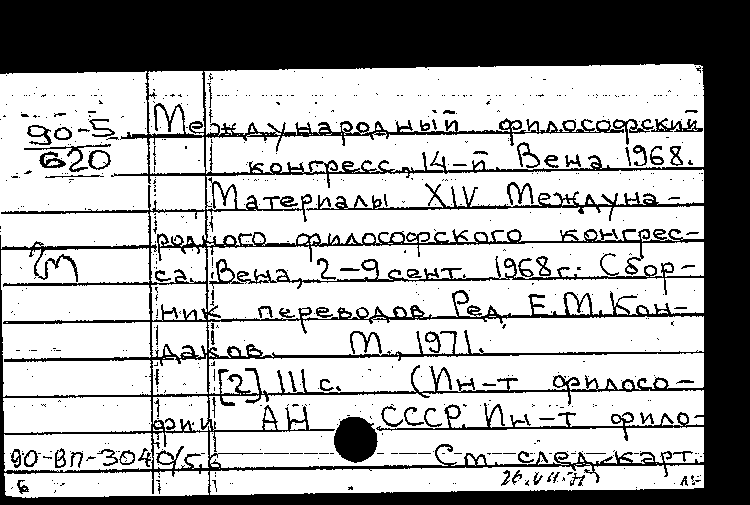 90-5 Международный философский
620 конгресс, 14-й. Вена. 1968.
Материалы XIV Междуна-
родного философского конгрес-
са. Вена, 2-9 сент. 1968 г.: Сбор-
ник переводов. Ред. Е.М.Кон-
даков. М., 1971.
[2], 111 с. (Ин-т филосо-
фии АН СССР. Ин-т фило-
90-ВП-3040/5,6 См. след. карт.
Б